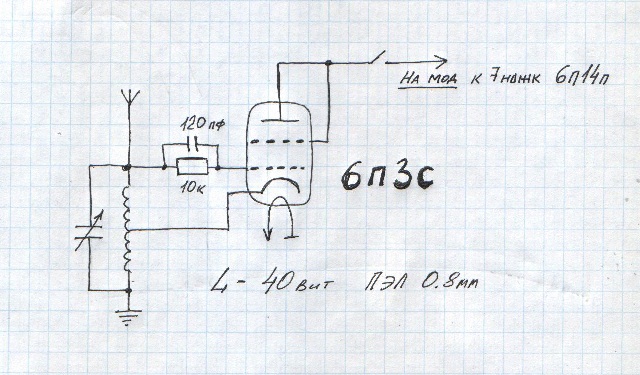 На мод к 7 ножк 6п14п
120 пф
10к
6П3С
L - 40 вит ПЭЛ 0.8мм